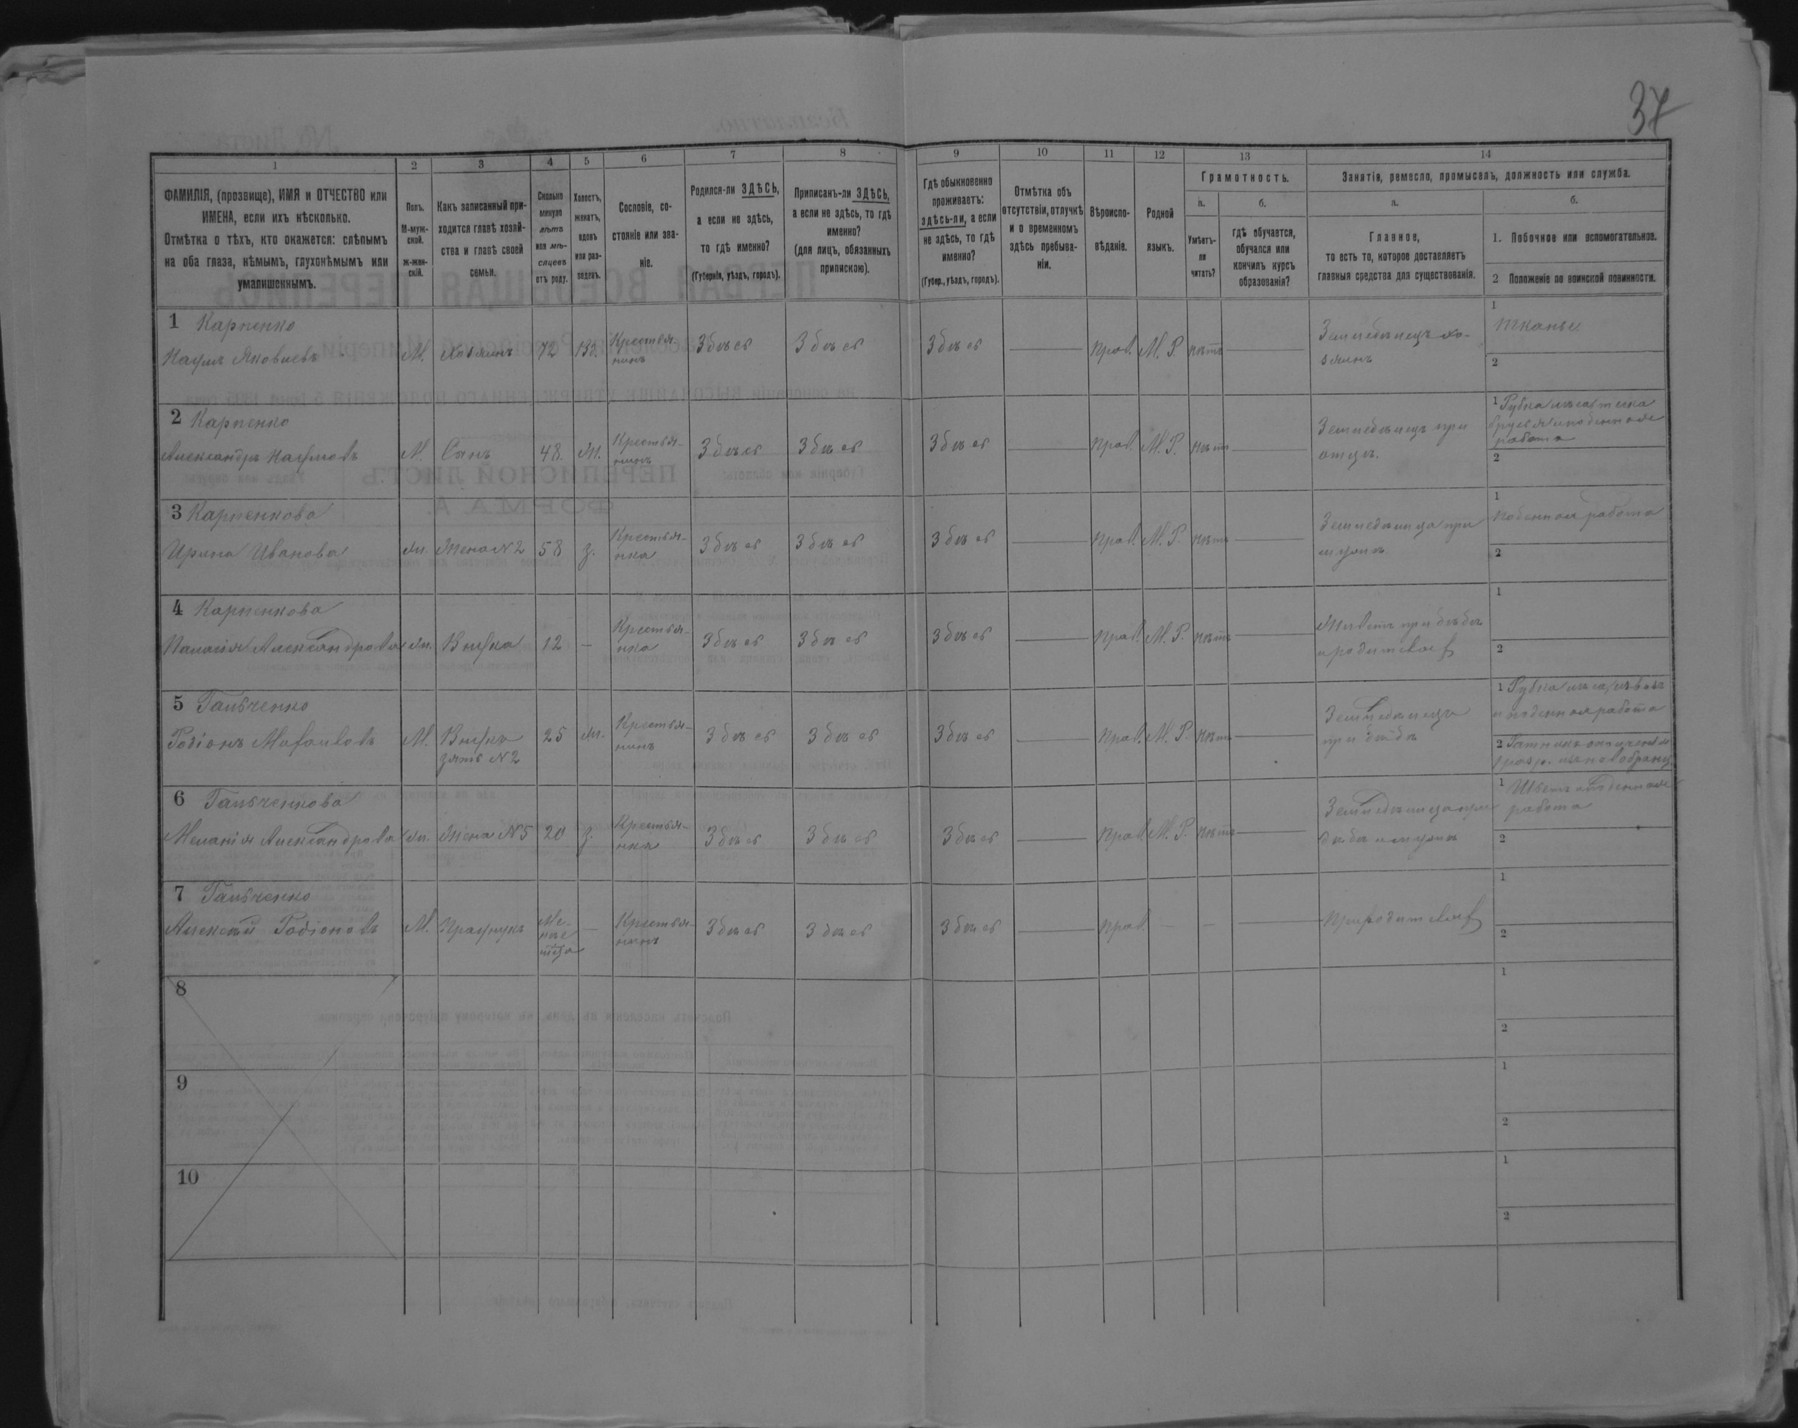 37
1 2 3 4 5 6 7 8 9 10 11 12 13 14
ФАМИЛІЯ, (прозвище), ИМЯ и ОТЧЕСТВО или
ИМЕНА, если ихъ нѣсколько.
Отмѣтка о тѣхъ, кто окажется: слѣпымъ
на оба глаза, нѣмымъ, глухонѣмымъ или
умалишеннымъ.
Полъ.
М-муж-
ской.
Ж-жен-
скій.
Какъ записанный при-
ходится главѣ хозяй-
ства и главѣ своей
семьи.
Сколько
минуло
лѣтъ
или мѣ-
сяцевъ
отъ роду.
Холостъ,
женатъ,
вдовъ
или раз-
веденъ.
Сословіе, со-
стояніе или зва-
ніе.
Родился-ли ЗДѢСЬ,
а если не здѣсь,
то гдѣ именно?
(Губернія, уѣздъ, городъ).
Приписанъ-ли ЗДѢСЬ,
а если не здѣсь, то гдѣ
именно?
(для лицъ, обязанныхъ
припискою).
Гдѣ обыкновенно
проживаетъ:
здѣсь-ли, а если
не здѣсь, то гдѣ
именно?
(Губер., уѣздъ, городъ).
Отмѣтка объ
отсутствіи, отлучкѣ
и о временномъ
здѣсь пребыва-
ніи.
Вѣроиспо-
вѣданіе.
Родной
языкъ.
Грамотность.
а.
Умѣетъ-
ли
читать?
б.
гдѣ обучается,
обучался или
кончилъ курсъ
образованія?
Занятія, ремесло, промыселъ, должность или служба.
а.
Главное,
то есть то, которое доставляетъ
главныя средства для существованія.
б.
1. Побочное или вспомогательное.
2 Положеніе по воинской повинности.
1 Карпенко
Наумъ Яковлевъ М. Хозяинъ 72 Вд. Крестья-
нинъ Здѣсь Здѣсь Здѣсь — прав. М. Р. нѣтъ — Земледѣлецъ хо-
зяинъ 1 Тканье
2
2 Карпенко
Александръ Наумовъ М. Сынъ 48. Ж. Крестья-
нинъ Здѣсь Здѣсь Здѣсь — прав. М. Р. нѣтъ — Земледѣлецъ при
отцѣ. 1 Рубка лѣса, теска
и поденная
работа
2
3 Карпенкова
Ирина Иванова Ж. Жена №2 58 З. Крестья-
нка Здѣсь Здѣсь Здѣсь — прав. М. Р. нѣтъ — Земледѣлица при
мужѣ 1 поденная работа
2
4 Карпенкова
Палагія Александрова Ж. Внучка 12 — Крестья-
нка Здѣсь Здѣсь Здѣсь — прав. М. Р. нѣтъ — Живетъ при дѣдѣ
и родителяхъ 1
2
5 Гальченко
Родіонъ М. Внукъ
зять №2 25 Ж. Крестья-
нинъ Здѣсь Здѣсь Здѣсь — прав. М. Р. нѣтъ — Земледѣлецъ
при дѣдѣ 1 Рубка лѣса,
и поденная работа
2 Ратникъ ополченія
6 Гальченкова
Меланія Александрова Ж. Жена №5 20 З. Крестья-
нка Здѣсь Здѣсь Здѣсь — прав. М. Р. нѣтъ — Земледѣлица при
дѣдѣ и мужѣ 1 поденная
работа
2
7 Гальченко
Алексѣй Родіоновъ М. Правнукъ — Крестья-
нинъ Здѣсь Здѣсь Здѣсь — прав. — — — При родителяхъ 1
2
8 1
2
9 1
2
10 1
2